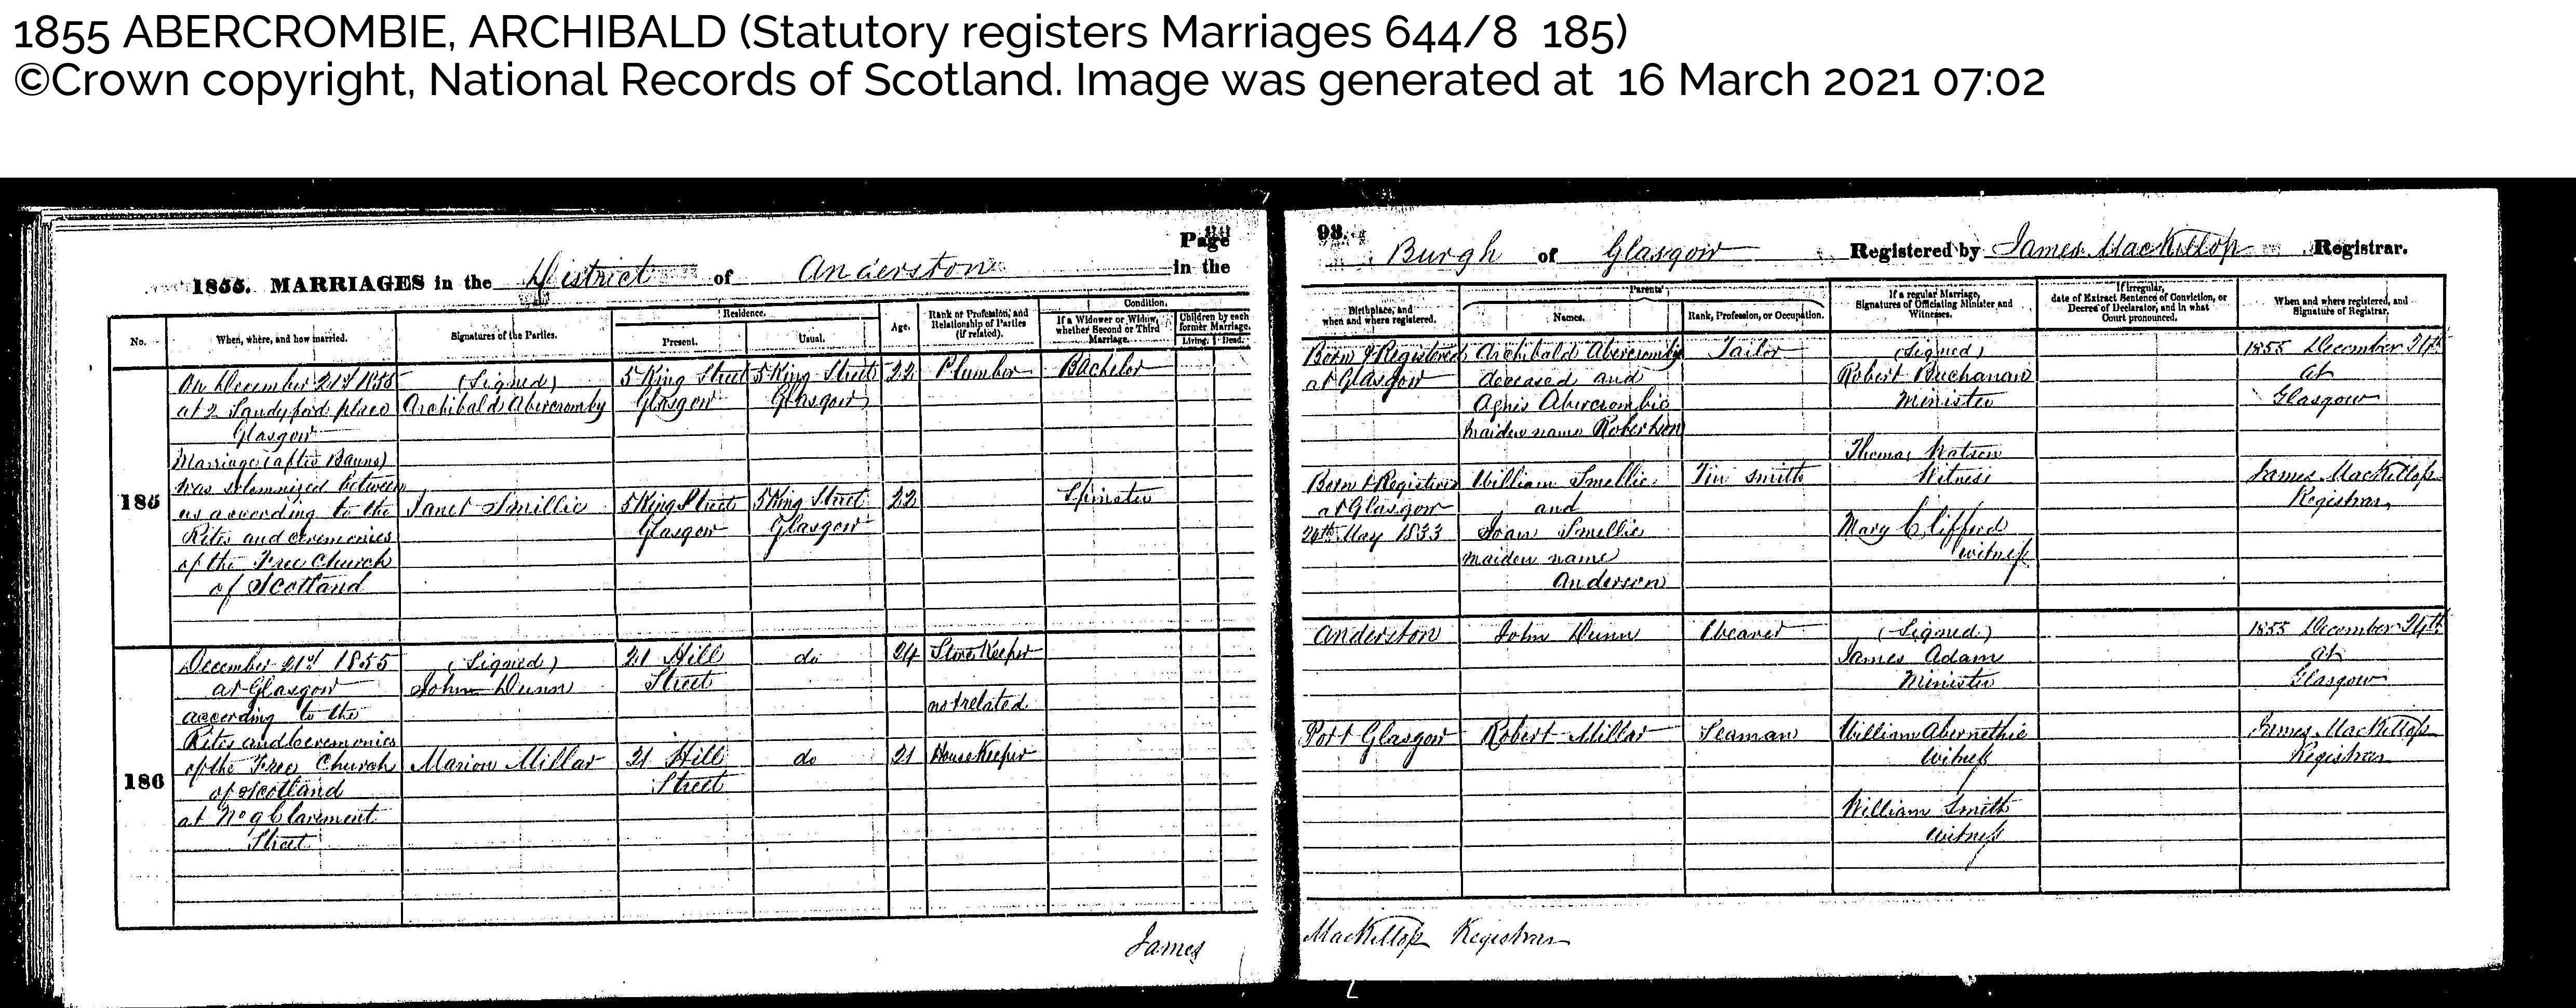 1855 ABERCROMBIE, ARCHIBALD (Statutory registers Marriages 644/8 185)
©Crown copyright, National Records of Scotland. Image was generated at 16 March 2021 07:02
Page
1855. MARRIAGES in the District of Anderston in the
No.
When, where, and how married.
Signatures of the Parties.
Residence.
Present.
Usual.
Age.
Rank or Profession, and
Relationship of Parties
(if related).
Condition.
If a Widower or Widow,
whether Second or Third
Marriage.
Children by each
former Marriage.
Living. Dead.
185
On December 21st 1855
at 2 Sandyford place
Glasgow
Marriage (after Banns)
was solemnized between
us according to the
Rites and ceremonies
of the Free Church
of Scotland
(Signed)
Archibald Abercromby
5 King Street
Glasgow
5 King Street
Glasgow
22
Plumber
Bachelor
Janet Smillie
5 King Street
Glasgow
5 King Street
Glasgow
22
Spinster
186
December 21st 1855
at Glasgow
according to the
Rites and Ceremonies
of the Free Church
of Scotland
at No 9 Claremont
Street
(Signed)
John Dunn
21 Hill
Street
do
24
Store Keeper
not related
Marion Millar
21 Hill
Street
do
21
House Keeper
James
93.
Burgh of Glasgow Registered by James MacKillop Registrar.
Birthplace, and
when and where registered.
Parents'
Names.
Rank, Profession, or Occupation.
If a regular Marriage,
Signatures of Officiating Minister and
Witnesses.
If irregular,
date of Extract Sentence of Conviction, or
Decree of Declarator, and in what
Court pronounced.
When and where registered, and
Signature of Registrar.
Born & Registered
at Glasgow
Archibald Abercromby
deceased and
Agnes Abercrombie
maiden name Robertson
Tailor
(Signed)
Robert Buchanan
Minister
Thomas Watson
Witness
Mary Clifford
witness
1855 December 24th
at
Glasgow
James MacKillop
Registrar
Born & Registered
at Glasgow
24th May 1833
William Smellie
and
Joan Smellie
maiden name
Anderson
Tin smith
Anderston
John Dunn
Weaver
(Signed)
James Adam
Minister
William Abernethie
Witness
William Smith
Witness
1855 December 24th
at
Glasgow
James MacKillop
Registrar
Port Glasgow
Robert Millar
Seaman
MacKillop Registrar